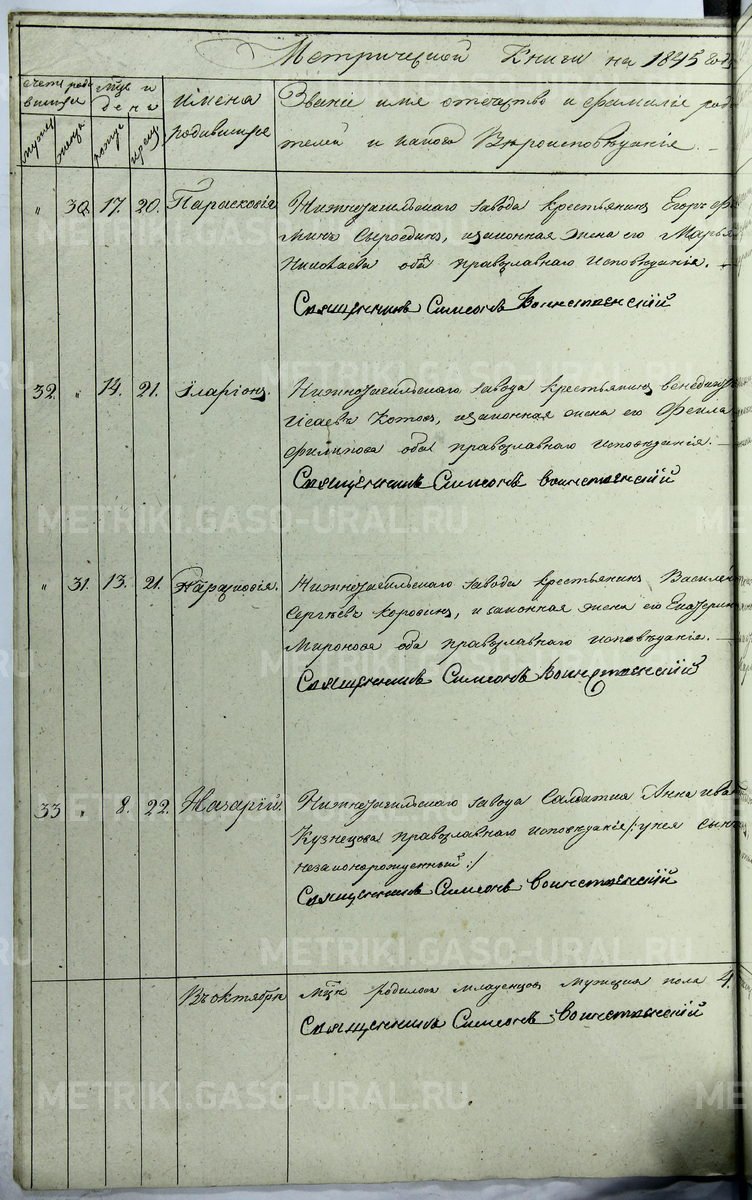 Метрической Книги на 1845 годъ
счетъ родившихся мѣс. и дена
Имена родившихся
Званіе имя отечество и фамиліе роди
телей и какова Вѣроисповѣданія. —
муж. женс.
" 30. 17. 20. Парасковія Нижнетагильскаго завода крестьянинъ Егоръ Фо
минъ Сыроединъ, изаконная жена его Марья
Николаева оба православнаго исповѣданія. —
Священникъ Симеонъ Воинственскій
32. " 14. 21. Іларіонъ. Нижнетагильскаго завода крестьянинъ Венедиктъ
Исаевъ Котовъ, изаконная жена его Фекла
Филипова оба православнаго исповѣданія. —
Священникъ Симеонъ Воинственскій
" 31. 13. 21. Парасковія. Нижнетагильскаго завода крестьянинъ Василей
Сергѣевъ Коровинъ, изаконная жена его Екатерин
Миронова оба православнаго исповѣданія. —
Священникъ Симеонъ Воинственскій
33 " 8. 22. Назарій. Нижнетагильскаго завода Салдатка Анна Ива
Кузнецова православнаго исповѣданія /: унея сынъ
незаконорожденный :/
Священникъ Симеонъ Воинственскій
Въ октябрѣ Мцѣ родилось младенцовъ мужеска пола 4.
Священникъ Симеонъ Воинственскій
METRIKI.GASO-URAL.RU